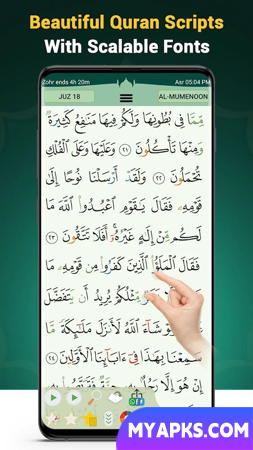 Beautiful Quran Scripts
With Scalable Fonts
Zohr ends 4h 20m
Asr 05:04 PM
JUZ 18
AL-MUMENOON
مِّمَّا فِي بُطُونِهَا وَلَكُمْ فِيهَا مَنَافِعُ كَثِيرَةٌ
وَمِنْهَا تَأْكُلُونَ ٢١ وَعَلَيْهَا وَعَلَى الْفُلْكِ
تُحْمَلُونَ ٢٢ وَلَقَدْ أَرْسَلْنَا نُوحًا إِلَىٰ
قَوْمِهِۦ فَقَالَ يَٰقَوْمِ اعْبُدُوا اللَّهَ مَا
لَكُم مِّنْ إِلَٰهٍ غَيْرُهُۥٓ أَفَلَا تَتَّقُونَ ٢٣
فَقَالَ الْمَلَؤُا الَّذِينَ كَفَرُوا مِن قَوْمِهِۦ مَا
مِّثْلُكُمْ يُرِيدُ أَن يَتَفَضَّلَ
شَآءَ اللَّهُ لَأَنزَلَ مَلَٰٓئِكَةً مَّا
سَمِعْنَا بِهَٰذَا فِيٓ ءَابَآئِنَا الْأَوَّلِينَ ٢٤
إِنْ هُوَ إِلَّا رَجُلٌ
MYAPKS.COM